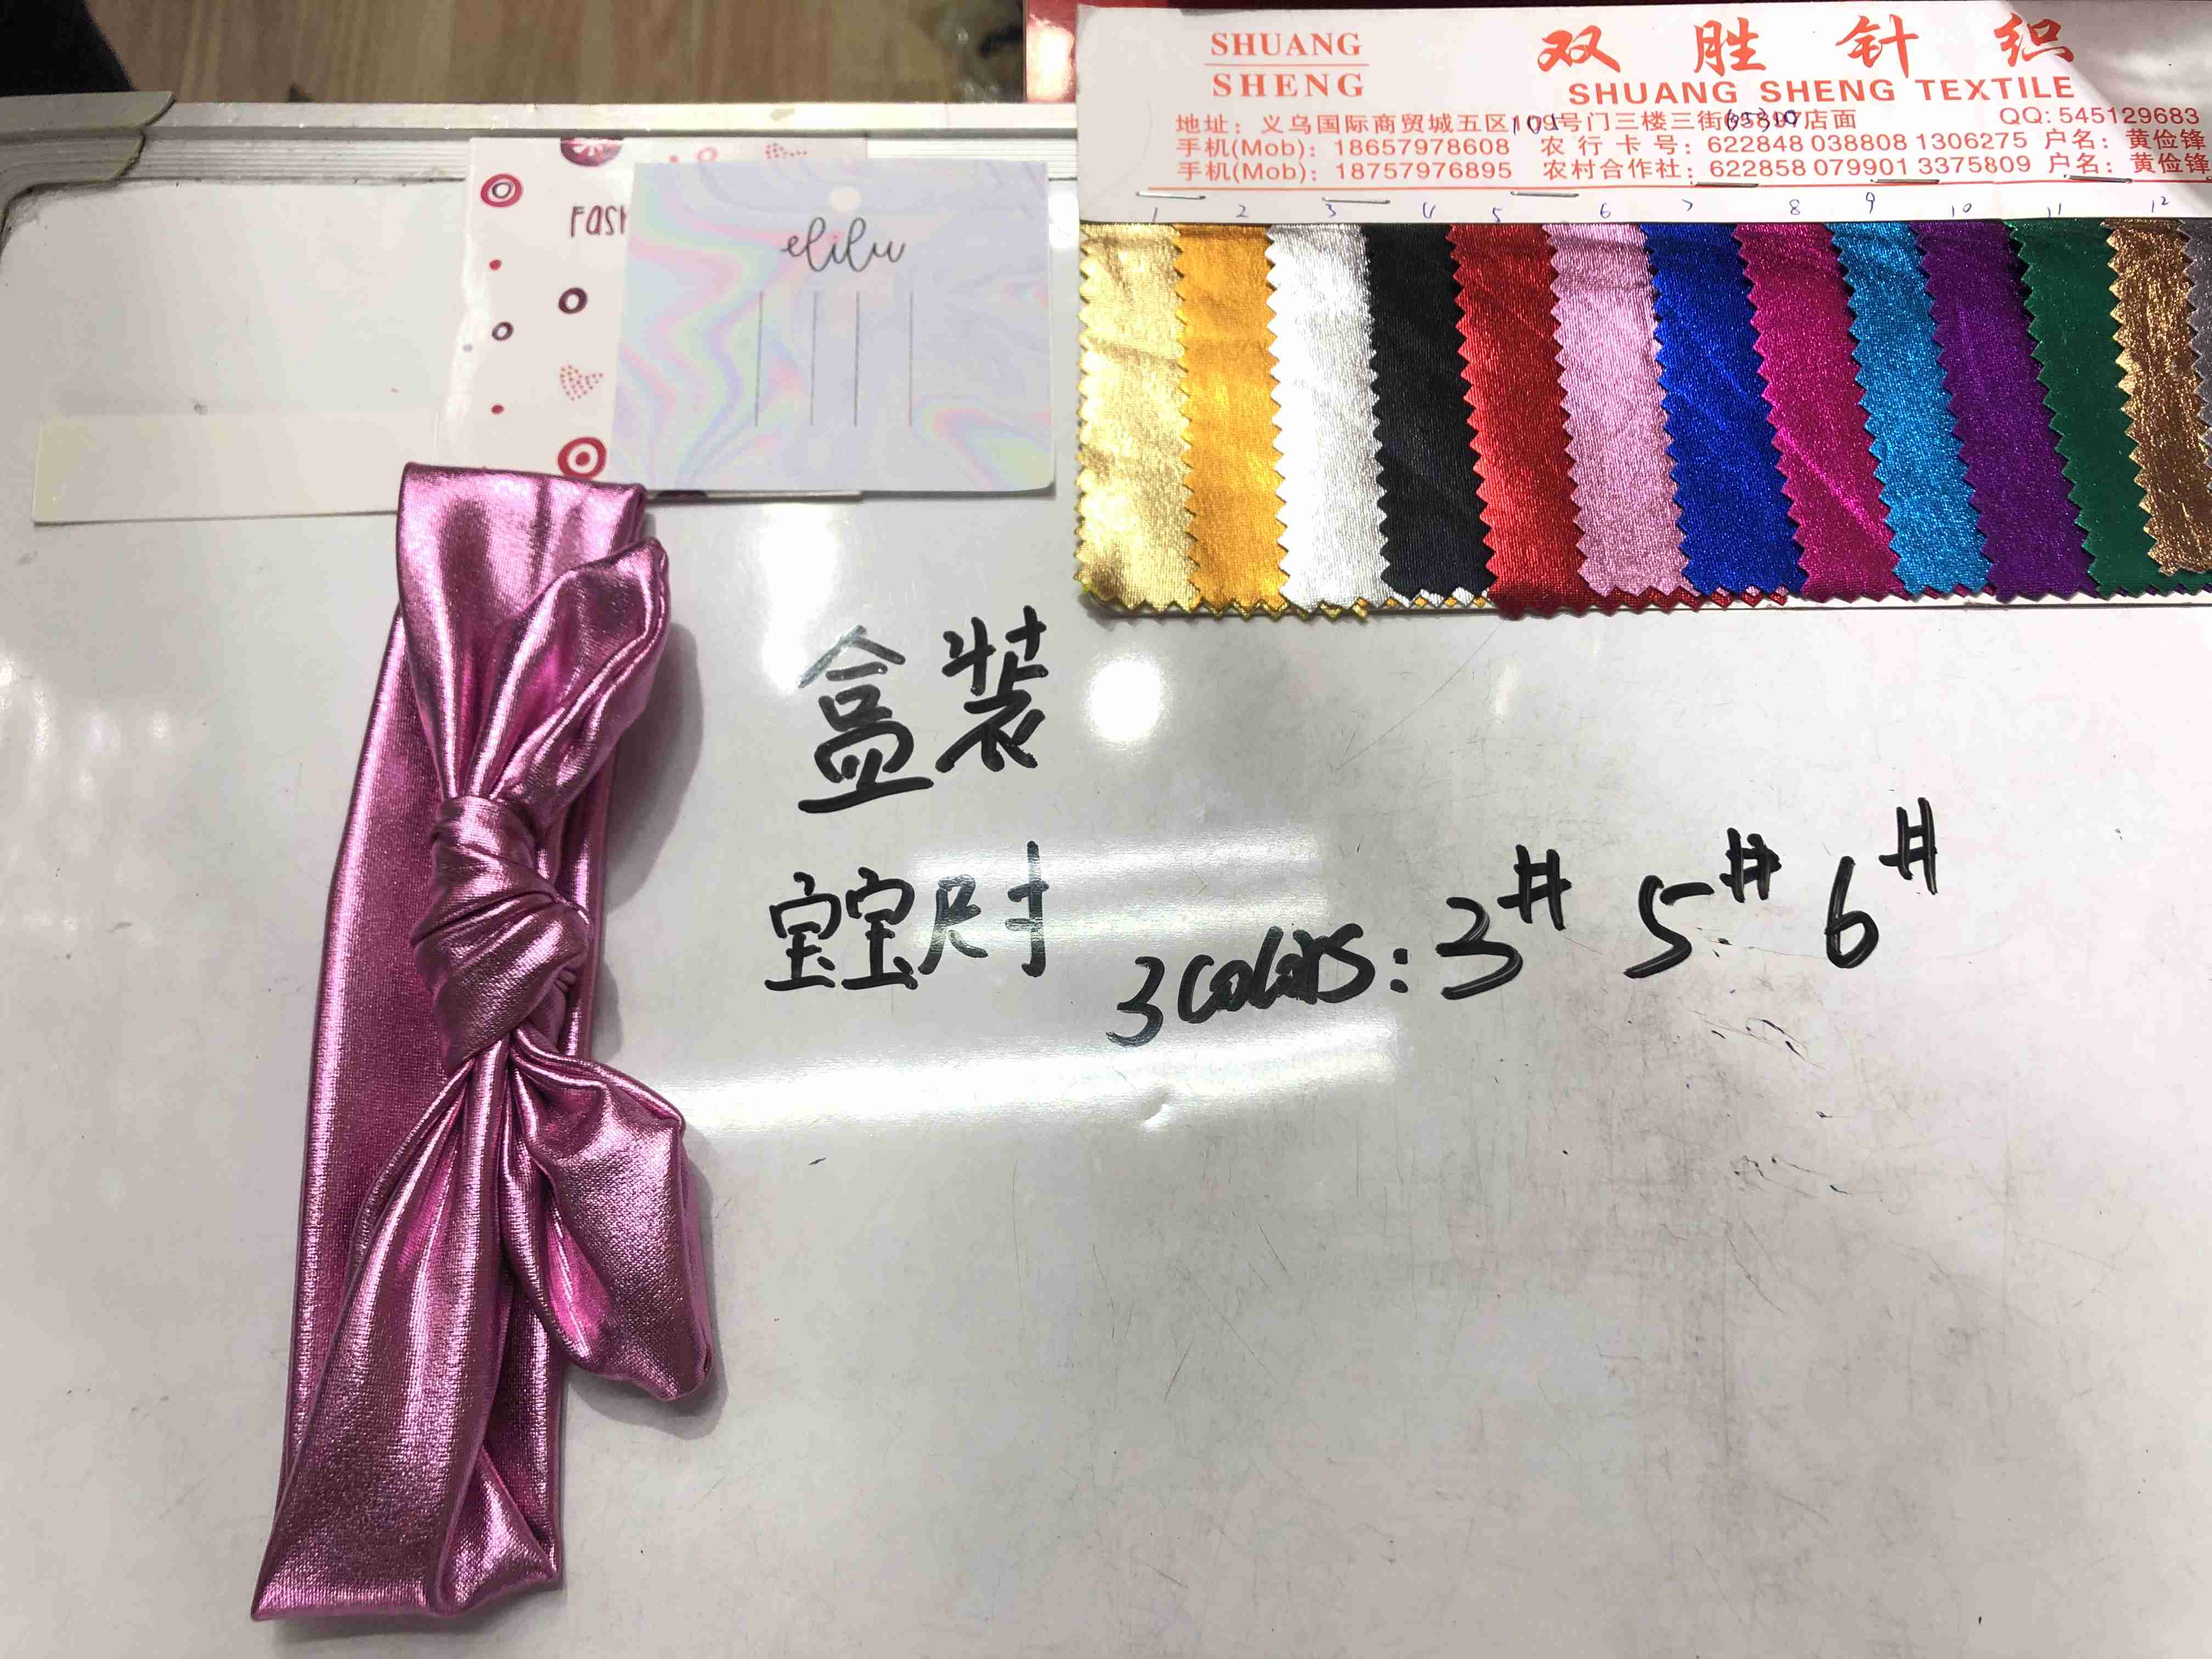 SHUANG
SHENG
双胜针织
SHUANG SHENG TEXTILE
地址：义乌国际商贸城五区105号门三楼三街店面
QQ: 545129683
手机(Mob)：18657978608 农行卡号：622848 038808 1306275 户名：黄俭锋
手机(Mob)：18757976895 农村合作社：622858 079901 3375809 户名：黄俭锋
1 2 3 4 5 6 7 8 9 10 11 12
FasH
elilu
盒装
宝宝尺寸
3 colors: 3# 5# 6#